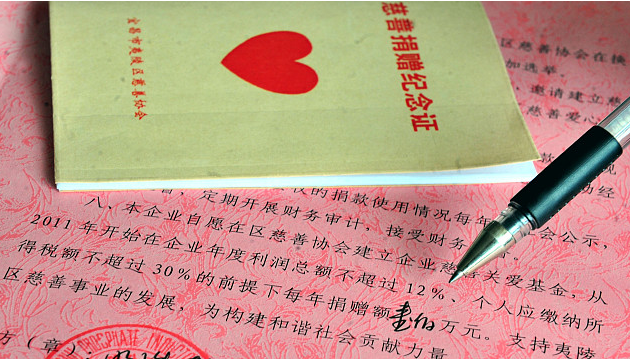 慈善捐赠纪念证
宜昌市夷陵区慈善协会
区慈善协会在换
加选举
，邀请建立慈
慈善爱心
的捐款使用情况每年 会公示，
定期开展财务审计，接受财务
八、本企业自愿在区慈善协会建立企业慈善关爱基金，从
2011年开始在企业年度利润总额不超过12%、个人应缴纳所
得税额不超过30%的前提下每年捐赠额壹佰万元。支持夷陵
区慈善事业的发展，为构建和谐社会贡献力量
方（章）：
PHOSPHATE